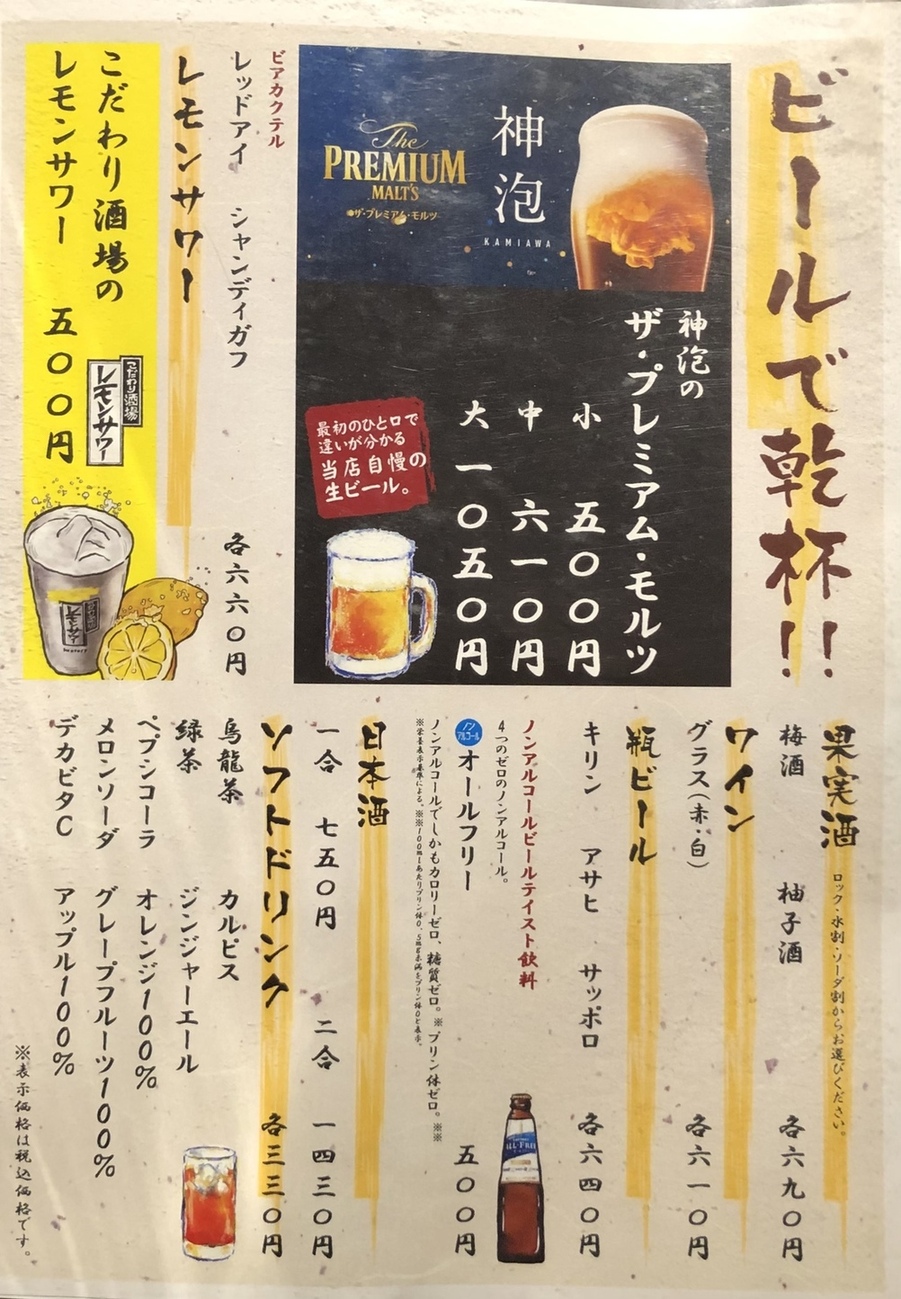 ビールで乾杯!!
神泡
KAMIAWA
The
PREMIUM
MALT'S
ザ・プレミアム・モルツ
神泡の
ザ・プレミアム・モルツ
小 五〇〇円
中 六一〇円
大 一〇五〇円
最初のひと口で
違いが分かる
当店自慢の
生ビール。
ビアカクテル
レッドアイ シャンディガフ 各六六〇円
レモンサワー
こだわり酒場の
レモンサワー 五〇〇円
こだわり酒場
レモンサワー
こだわり酒場
レモンサワー
果実酒 ロック・水割・ソーダ割からお選びください。
梅酒 柚子酒 各六九〇円
ワイン
グラス(赤・白) 各六一〇円
瓶ビール
キリン アサヒ サッポロ 各六四〇円
ノンアルコールビールテイスト飲料
4つのゼロのノンアルコール。
ノンアルコール
オールフリー 五〇〇円
ALL-FREE
ノンアルコールでしかもカロリーゼロ、糖質ゼロ。※ プリン体ゼロ。※※
※栄養表示基準による。※※100mlあたりプリン体0.5mg未満をプリン体0と表示。
日本酒
一合 七五〇円 二合 一四三〇円
ソフトドリンク 各三三〇円
烏龍茶 カルピス
緑茶 ジンジャーエール
ペプシコーラ オレンジ100%
メロンソーダ グレープフルーツ100%
デカビタC アップル100%
※表示価格は税込価格です。